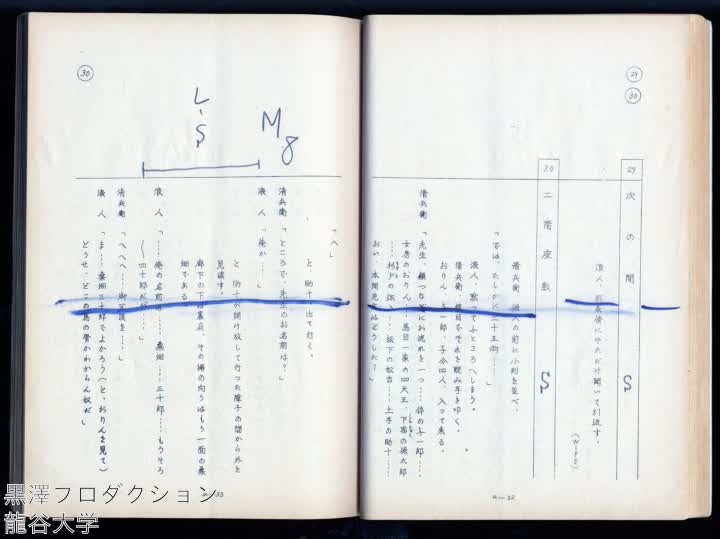 29
30
29
次の間
浪人、
それだけ聞いて引返す。
(WIPE)
S
30
二階座敷
S
清兵衛
の前に小判を並べ、
「では、たしかに二十五両……」
浪人、黙ってふところへしまう。
清兵衛、横目でそれを睨み手を叩く。
おりん、与一郎、子分四人、入って来る。
清兵衛「先生、頼つなぎにお流れを一つ……倅の与一郎……
女房のおりん、
馬目一家の四天王、
の孫太郎
……
坂下の松吉……土手の助十……
おい、本間先生はどうした?」
a—32
30
L-S
M8
「へい」
と、助十、出て行く。
清兵衛「ところで、先生のお名前は?」
浪人「俺か……」
と、助十が開け放して行った障子の間から外を
見渡す。
廊下の下は裏庭、その塀の向うはもう一面の桑
畑である。
浪人「……俺の名前は……桑畑……三十郎……もうそろ
そろ四十郎だが……」
清兵衛「へへへ……御冗談を……」
浪人「ま……桑畑三十郎でよかろう(と、おりんを見て)
どうせ、どこの馬の骨かわからん奴だ」
a—33
黒澤プロダクション
龍谷大学